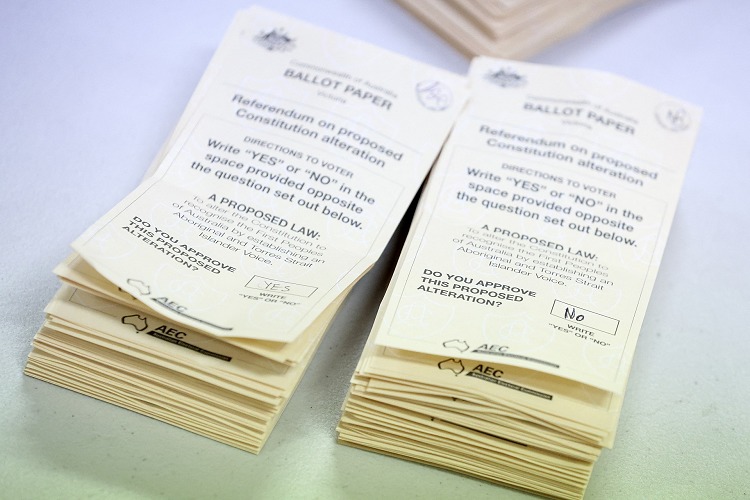 Commonwealth of Australia
BALLOT PAPER
Victoria
Referendum on proposed
Constitution alteration
DIRECTIONS TO VOTER
Write “YES” or “NO” in the
space provided opposite
the question set out below.
A PROPOSED LAW:
To alter the Constitution to
recognise the First Peoples
of Australia by establishing an
Aboriginal and Torres Strait
Islander Voice.
DO YOU APPROVE
THIS PROPOSED
ALTERATION?
YES
WRITE
“YES” OR “NO”
AEC
AEC
Commonwealth of Australia
BALLOT PAPER
Victoria
Referendum on proposed
Constitution alteration
DIRECTIONS TO VOTER
Write “YES” or “NO” in the
space provided opposite
the question set out below.
A PROPOSED LAW:
To alter the Constitution to
recognise the First Peoples
of Australia by establishing an
Aboriginal and Torres Strait
Islander Voice.
DO YOU APPROVE
THIS PROPOSED
ALTERATION?
No
WRITE
“YES” OR “NO”
AEC
AEC
Australian Electoral Commission